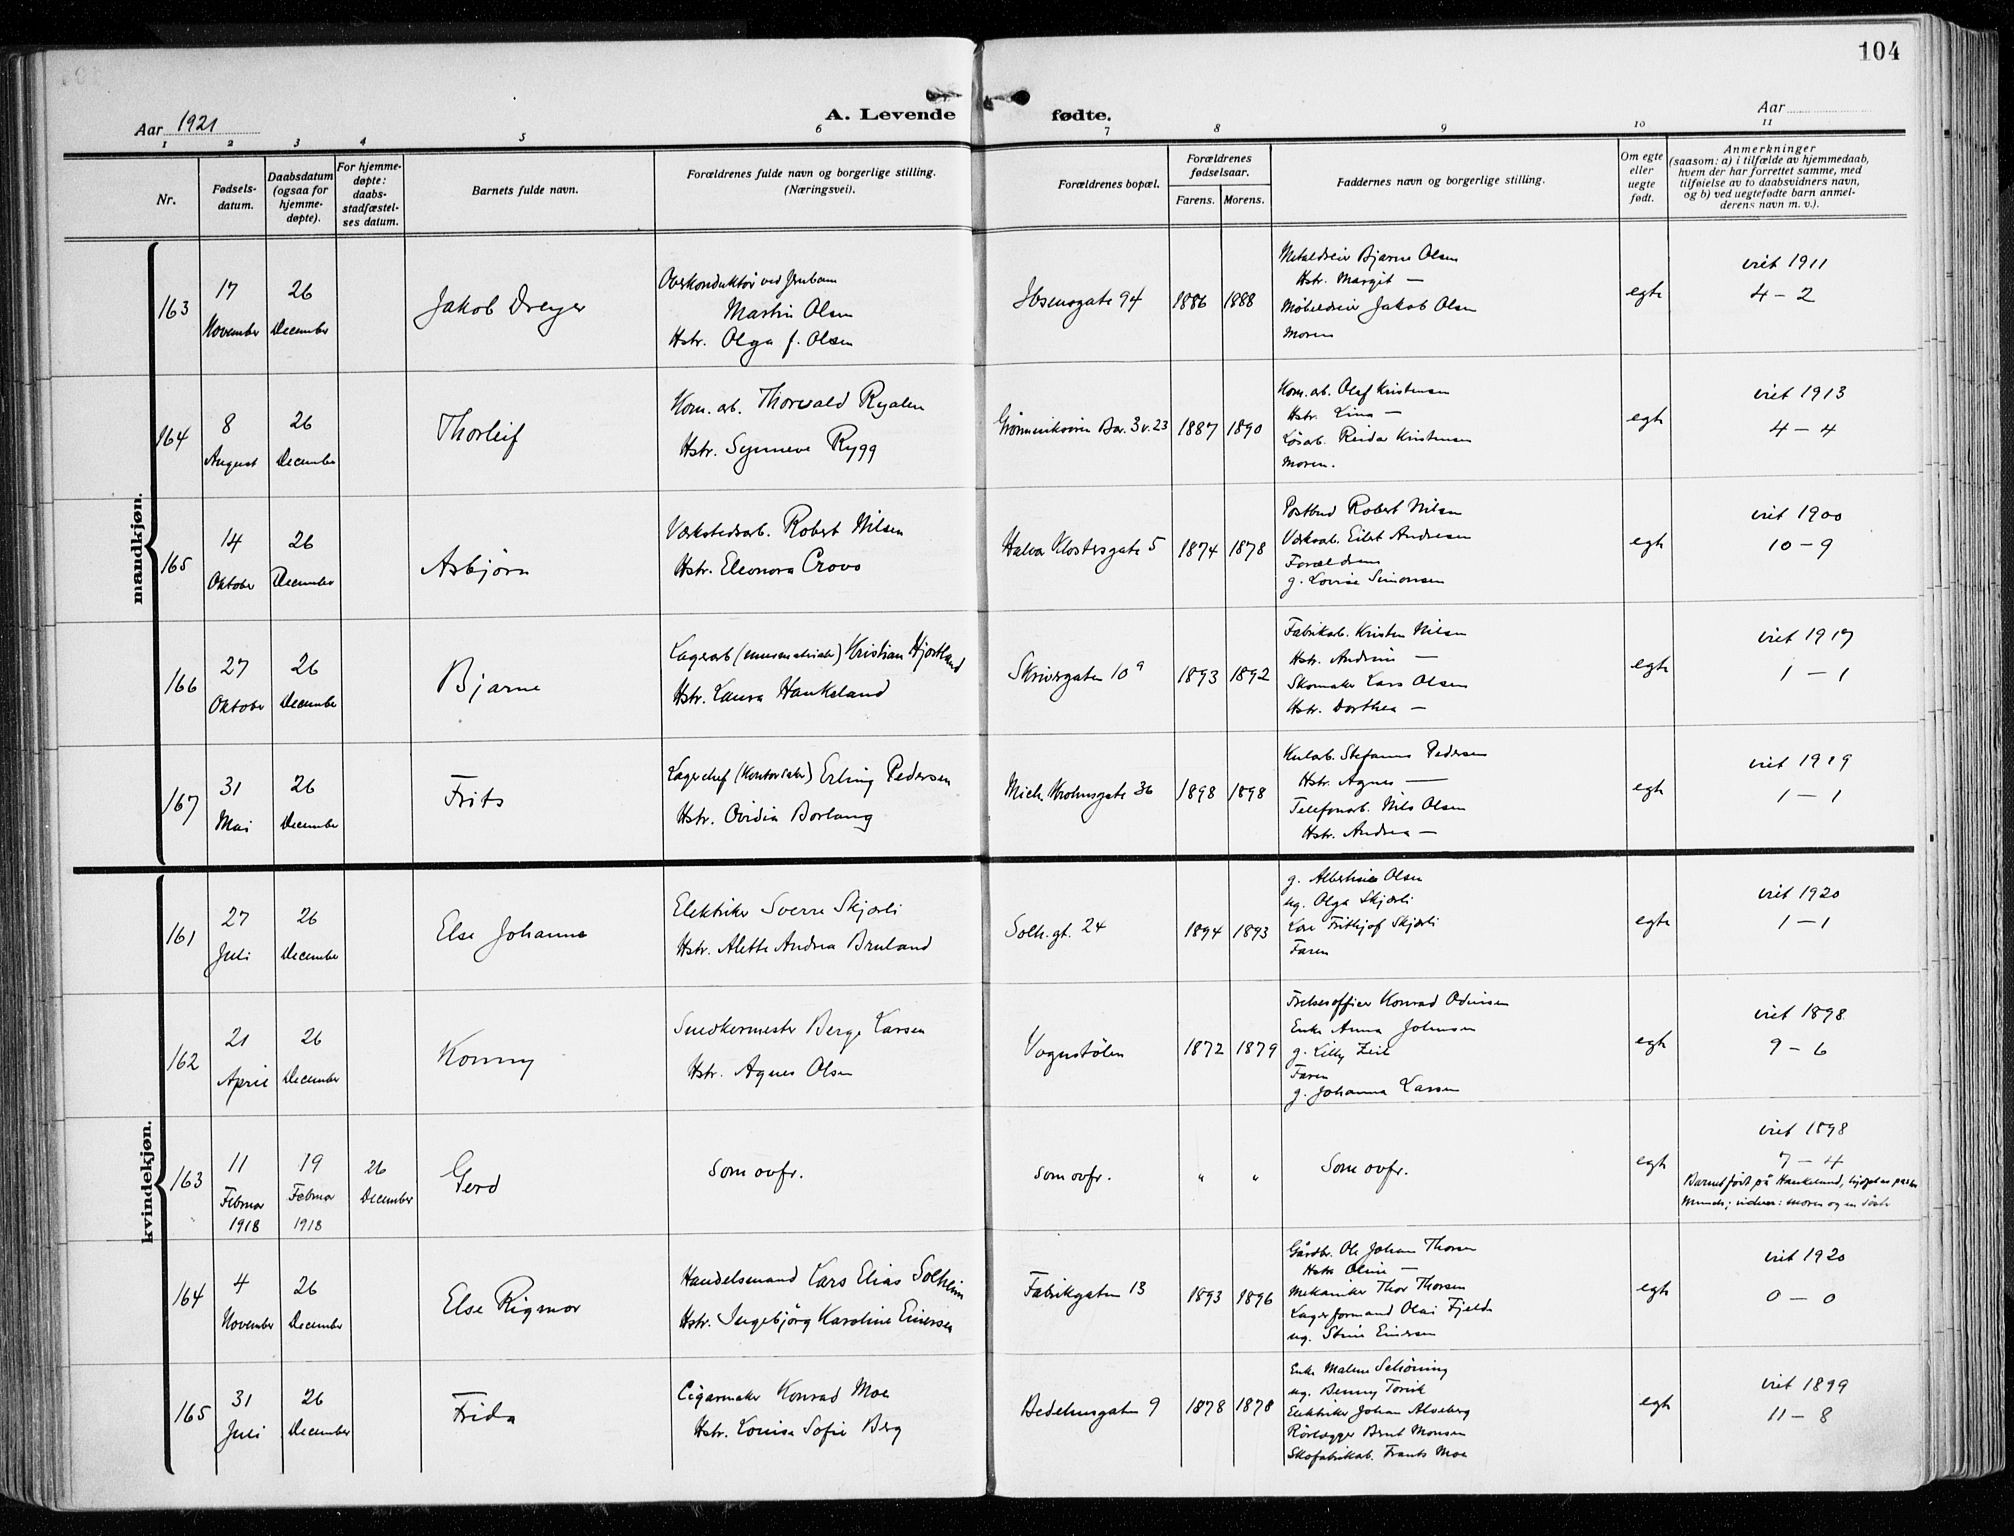 104
Aar 1921
A. Levende fødte.
Aar
1 2 3 4 5 6 7 8 9 10 11
Nr.
Fødsels-
datum.
Daabsdatum
(ogsaa for
hjemme-
døpte).
For hjemme-
døpte:
daabs-
stadfæstel-
ses datum.
Barnets fulde navn.
Forældrenes fulde navn og borgerlige stilling.
(Næringsvei).
Forældrenes bopæl.
Forældrenes
fødselsaar.
Farens. Morens.
Faddernes navn og borgerlige stilling.
Om egte
eller
uegte
født.
Anmerkninger
(saasom: a) i tilfælde av hjemmedaab,
hvem der har forrettet samme, med
tilføielse av to daabsvidners navn,
og b) ved uegtefødte barn anmel-
derens navn m. v.).
mandkjøn.
163
17
November
26
December
Jakob Dreyer
Overkonduktør ved Jernbanen
Martin Olsen
Hstr. Olga f. Olsen
Ibsensgate 94
1886
1888
Metaldreier Bjarne Olsen
Hstr. Margit —
Møbeldreier Jakob Olsen
Moren
egte
viet 1911
4 – 2
164
8
August
26
December
Thorleif
Kom. arb. Thorvald Ryalen
Hstr. Synneve Rygg
Grønneviksøren Bar. 3 v. 23
1887
1890
Kom. arb. Olaf Kristensen
Hstr. Lina —
Løsarb. Reidar Kristensen
Moren.
egte
viet 1913
4 – 4
165
14
Oktober
26
December
Asbjørn
Værkstedsarb. Robert Nilsen
Hstr. Eleonora Crovo
Halvor Klostersgate 5
1874
1878
Postbud Robert Nilsen
Værksarb. Eilert Andresen
Forældrene
g. Lovise Simonsen
egte
viet 1900
10 – 9
166
27
Oktober
26
December
Bjarne
Lagerarb. Kristian Hjortland
Hstr. Laura Haukeland
Skriversgaten 10 a
1893
1892
Fabrikarb. Kristen Nilsen
Hstr. Andrine —
Skomaker Lars Olsen
Hstr. Dorthea —
egte
viet 1917
1 – 1
167
31
Mai
26
December
Frits
Lagerchef (Kontorsaker) Erling Pedersen
Hstr. Ovidia Borlaug
Mich. Krohnsgate 36
1898
1898
Kularb. Stefanus Pedersen
Hstr. Agnes —
Telefonarb. Nils Olsen
Hstr. Andrea —
egte
viet 1919
1 – 1
kvindekjøn.
161
27
Juli
26
December
Else Johanne
Elektriker Sverre Skjærli
Hstr. Alette Andrea Bruland
Solh. gt. 24
1894
1893
g. Albertine Olsen
ug. Olga Skjærli
Frithjof Skjærli
Faren
egte
viet 1920
1 – 1
162
21
April
26
December
Konny
Snedkermester Berge Larsen
Hstr. Agnes Olsen
Vognstølen
1872
1879
Frelsesoffiser Konrad Odinsen
Enke Anna Johnsen
g. Lilly
Faren
g. Johanna Larsen
egte
viet 1898
9 – 6
163
11
Februar
1918
19
Februar
1918
26
December
Gerd
Som ovfr.
som ovfr.
"
"
Som ovfr.
egte
viet 1898
7 – 4
Barnet født på Haukeland, hjdøpt av pastor
Munch; vidner: moren og en søster
164
4
November
26
December
Else Rigmor
Handelsmand Lars Elias Solheim
Hstr. Ingebjörg Karoline Einersen
Fabrikgaten 13
1893
1896
Gårdbr. Ole Johan Thorsen
Hstr. Oline —
Mekaniker Thor Thorsen
Lagerformand Olai Fjelde
ug. Stine Einersen
egte
viet 1920
0 – 0
165
31
Juli
26
December
Frida
Cigarmaker Konrad Moe
Hstr. Louise Sofie Berg
Bedehusgaten 9
1878
1878
Enke Malene Schøning
ug. Benny Torvik
Elektriker Johan Alveberg
Rörlægger Bernt Monsen
Skofabrikarb. Frants Moe
egte
viet 1899
11 – 8